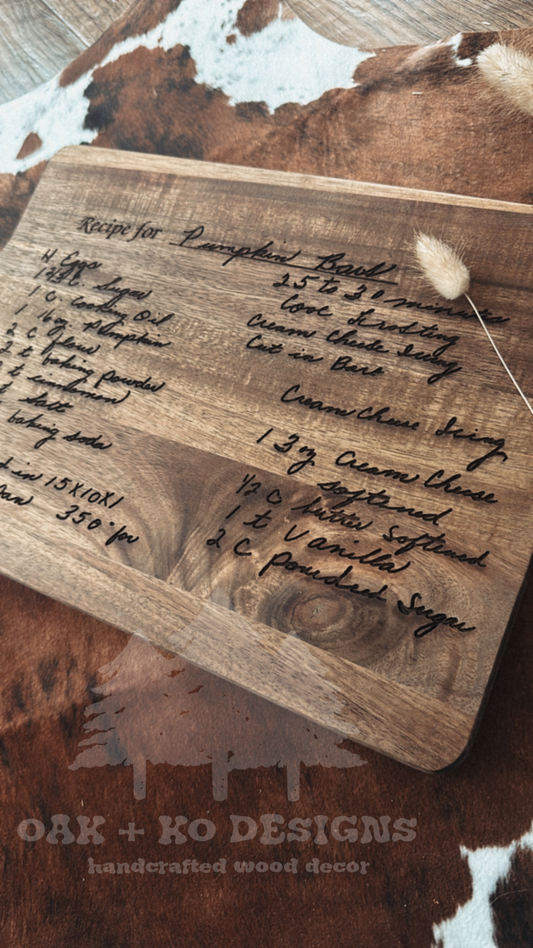 Recipe for Pumpkin Bars
4 Eggs
C. Sugar
1 C. Cooking Oil
1 16 oz Pumpkin
2 C flour
2 t baking powder
t cinnamon
t Salt
baking soda
in 15X10X1
Pan 350° for
25 to 30 minutes
Cool Frosting
Cream Cheese Icing
Cut in Bars
Cream Cheese Icing
1 3 oz Cream Cheese
softened
1/2 C butter Softened
1 t Vanilla
2 C Powdered Sugar
OAK + KO DESIGNS
handcrafted wood decor